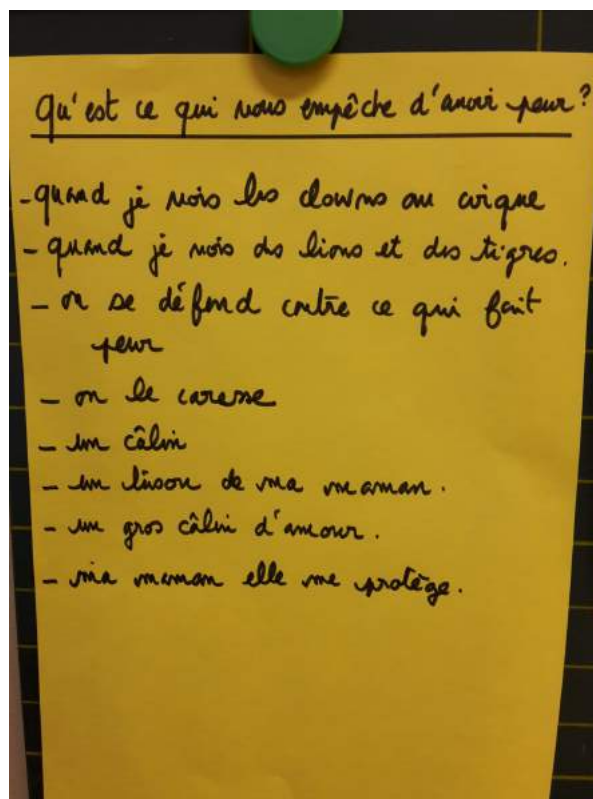 Qu'est ce qui nous empêche d'avoir peur ?
- quand je vois les clowns au cirque
- quand je vois des lions et des tigres.
- on se défend contre ce qui fait
peur
- on le caresse
- un câlin
- un bisou de ma maman.
- un gros câlin d'amour.
- ma maman elle me protège.